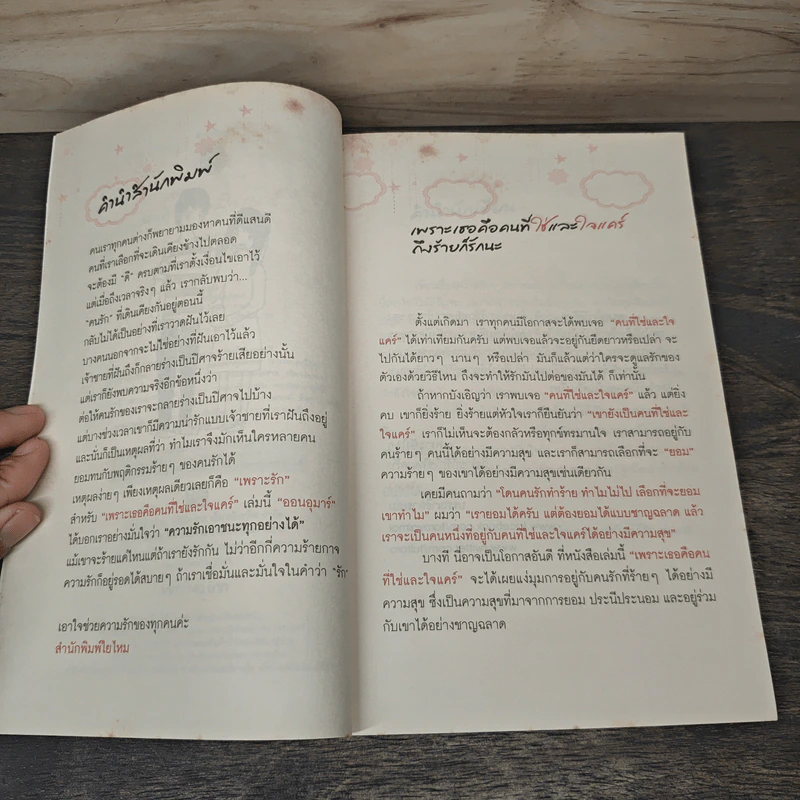 คำนำสำนักพิมพ์
คนเราทุกคนต่างก็พยายามมองหาคนที่ดีแสนดี
คนที่เราเลือกที่จะเดินเคียงข้างไปตลอด
จะต้องมี "ดี" ครบตามที่เราตั้งเงื่อนไขเอาไว้
แต่เมื่อถึงเวลาจริงๆ แล้ว เรากลับพบว่า...
"คนรัก" ที่เดินเคียงกันอยู่ตอนนี้
กลับไม่ได้เป็นอย่างที่เราวาดฝันไว้เลย
บางคนนอกจากจะไม่ใช่อย่างที่ฝันเอาไว้แล้ว
เจ้าชายที่ฝันถึงก็กลายร่างเป็นปีศาจร้ายเสียอย่างนั้น
แต่เราก็ยังพบความจริงอีกข้อหนึ่งว่า
ต่อให้คนรักของเราจะกลายร่างเป็นปีศาจไปบ้าง
แต่บางช่วงเวลาเขาก็มีความน่ารักแบบเจ้าชายที่เราฝันถึงอยู่
และนั่นก็เป็นเหตุผลที่ว่า ทำไมเราจึงมักเห็นใครหลายคน
ยอมทนกับพฤติกรรมร้ายๆ ของคนรักได้
เหตุผลง่ายๆ เพียงเหตุผลเดียวเลยก็คือ "เพราะรัก"
สำหรับ "เพราะเธอคือคนที่ใช่และใจแคร์" เล่มนี้ "ออนอุมาร์"
ได้บอกเราอย่างมั่นใจว่า "ความรักเอาชนะทุกอย่างได้"
แม้เขาจะร้ายแค่ไหนแต่ถ้าเรายังรักกัน ไม่ว่าอีกกี่ความร้ายกาจ
ความรักก็อยู่รอดได้สบายๆ ถ้าเราเชื่อมั่นและมั่นใจในคำว่า "รัก"
เอาใจช่วยความรักของทุกคนค่ะ
สำนักพิมพ์ใยไหม
เพราะเธอคือคนที่ใช่และใจแคร์
ถึงร้ายก็รักนะ
ตั้งแต่เกิดมา เราทุกคนมีโอกาสจะได้พบเจอ "คนที่ใช่และใจ
แคร์" ได้เท่าเทียมกันครับ แต่พบเจอแล้วจะอยู่กันยืดยาวหรือเปล่า จะ
ไปกันได้ยาวๆ นานๆ หรือเปล่า มันก็แล้วแต่ว่าใครจะดูแลรักของ
ตัวเองด้วยวิธีไหน ถึงจะทำให้รักมันไปต่อของมันได้ ก็เท่านั้น
ถ้าหากบังเอิญว่า เราพบเจอ "คนที่ใช่และใจแคร์" แล้ว แต่ยิ่ง
คบ เขาก็ยิ่งร้าย ยิ่งร้ายแต่หัวใจเราก็ยืนยันว่า "เขายังเป็นคนที่ใช่และ
ใจแคร์" เราก็ไม่เห็นจะต้องกลัวหรือทุกข์ทรมานใจ เราสามารถอยู่กับ
คนร้ายๆ คนนี้ได้อย่างมีความสุข และเราก็สามารถเลือกที่จะ "ยอม"
ความร้ายๆ ของเขาได้อย่างมีความสุขเช่นเดียวกัน
เคยมีคนถามว่า "โดนคนรักทำร้าย ทำไมไม่ไป เลือกที่จะยอม
เขาทำไม" ผมว่า "เรายอมได้ครับ แต่ต้องยอมได้แบบชาญฉลาด แล้ว
เราจะเป็นคนหนึ่งที่อยู่กับคนที่ใช่และใจแคร์ได้อย่างมีความสุข"
บางที นี่อาจเป็นโอกาสอันดี ที่หนังสือเล่มนี้ "เพราะเธอคือคน
ที่ใช่และใจแคร์" จะได้เผยแง่มุมการอยู่กับคนรักที่ร้ายๆ ได้อย่างมี
ความสุข ซึ่งเป็นความสุขที่มาจากการยอม ประนีประนอม และอยู่ร่วม
กับเขาได้อย่างชาญฉลาด